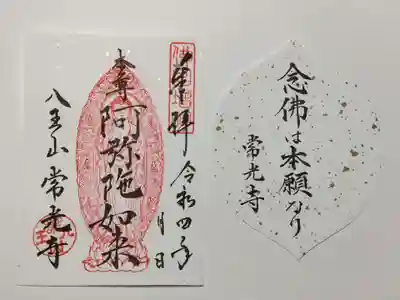 奉拝
令和四年 月 日
本尊
阿弥陀如来
八王山 常光寺
念佛は本願なり
常光寺